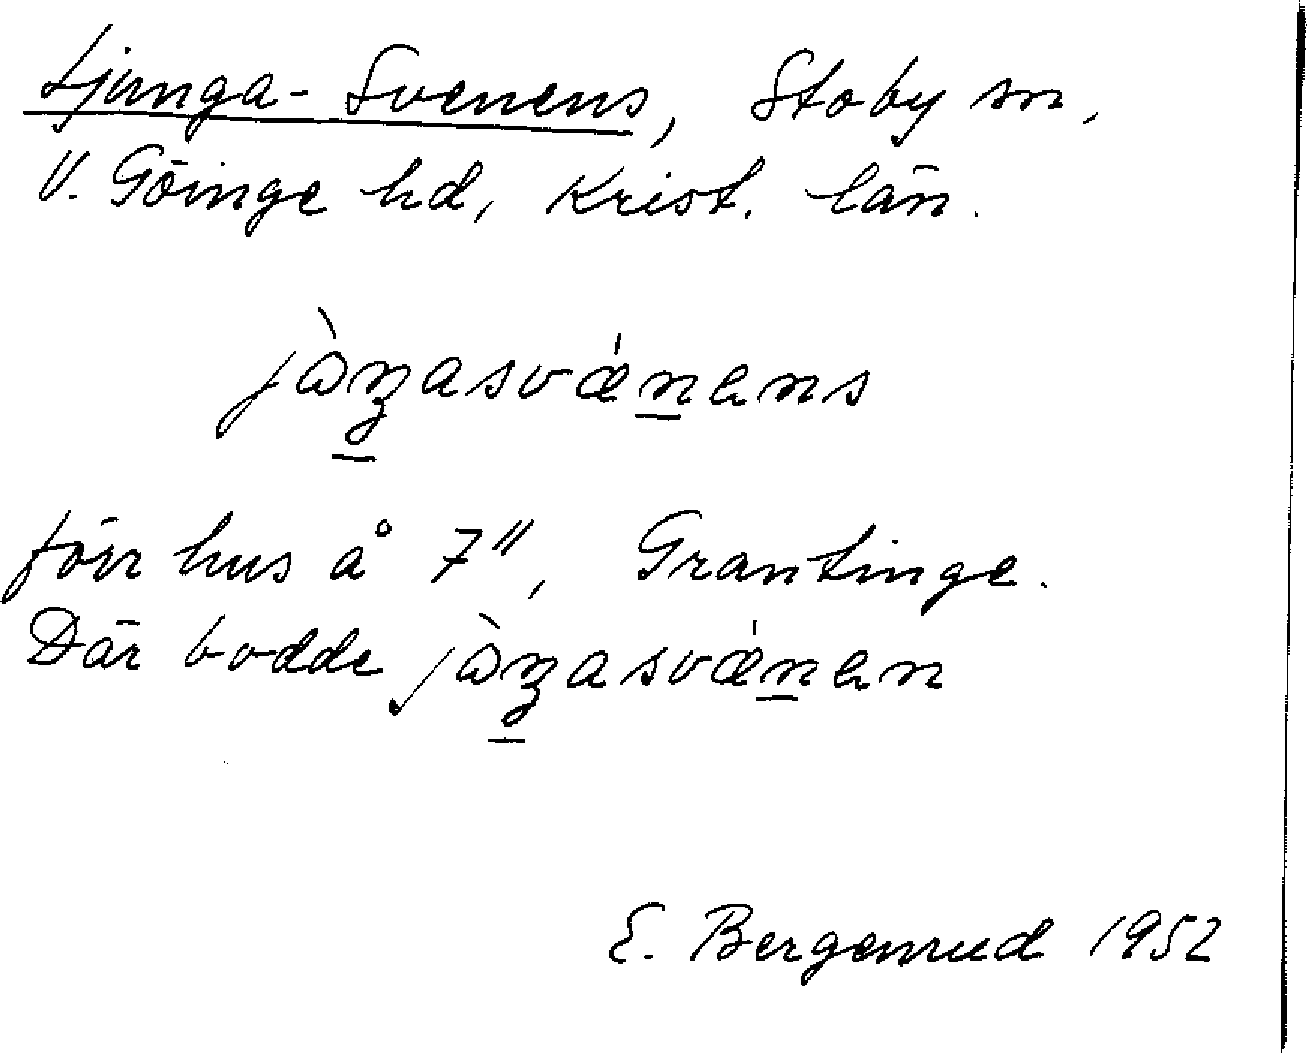 Ljunga-Svenens, Stoby sn,
V. Göinge hd, Krist. län.
jàŋasvǽnens
förr hus å 7", Grantinge.
Där bodde jàŋasvǽnen
E. Bergenrud 1952